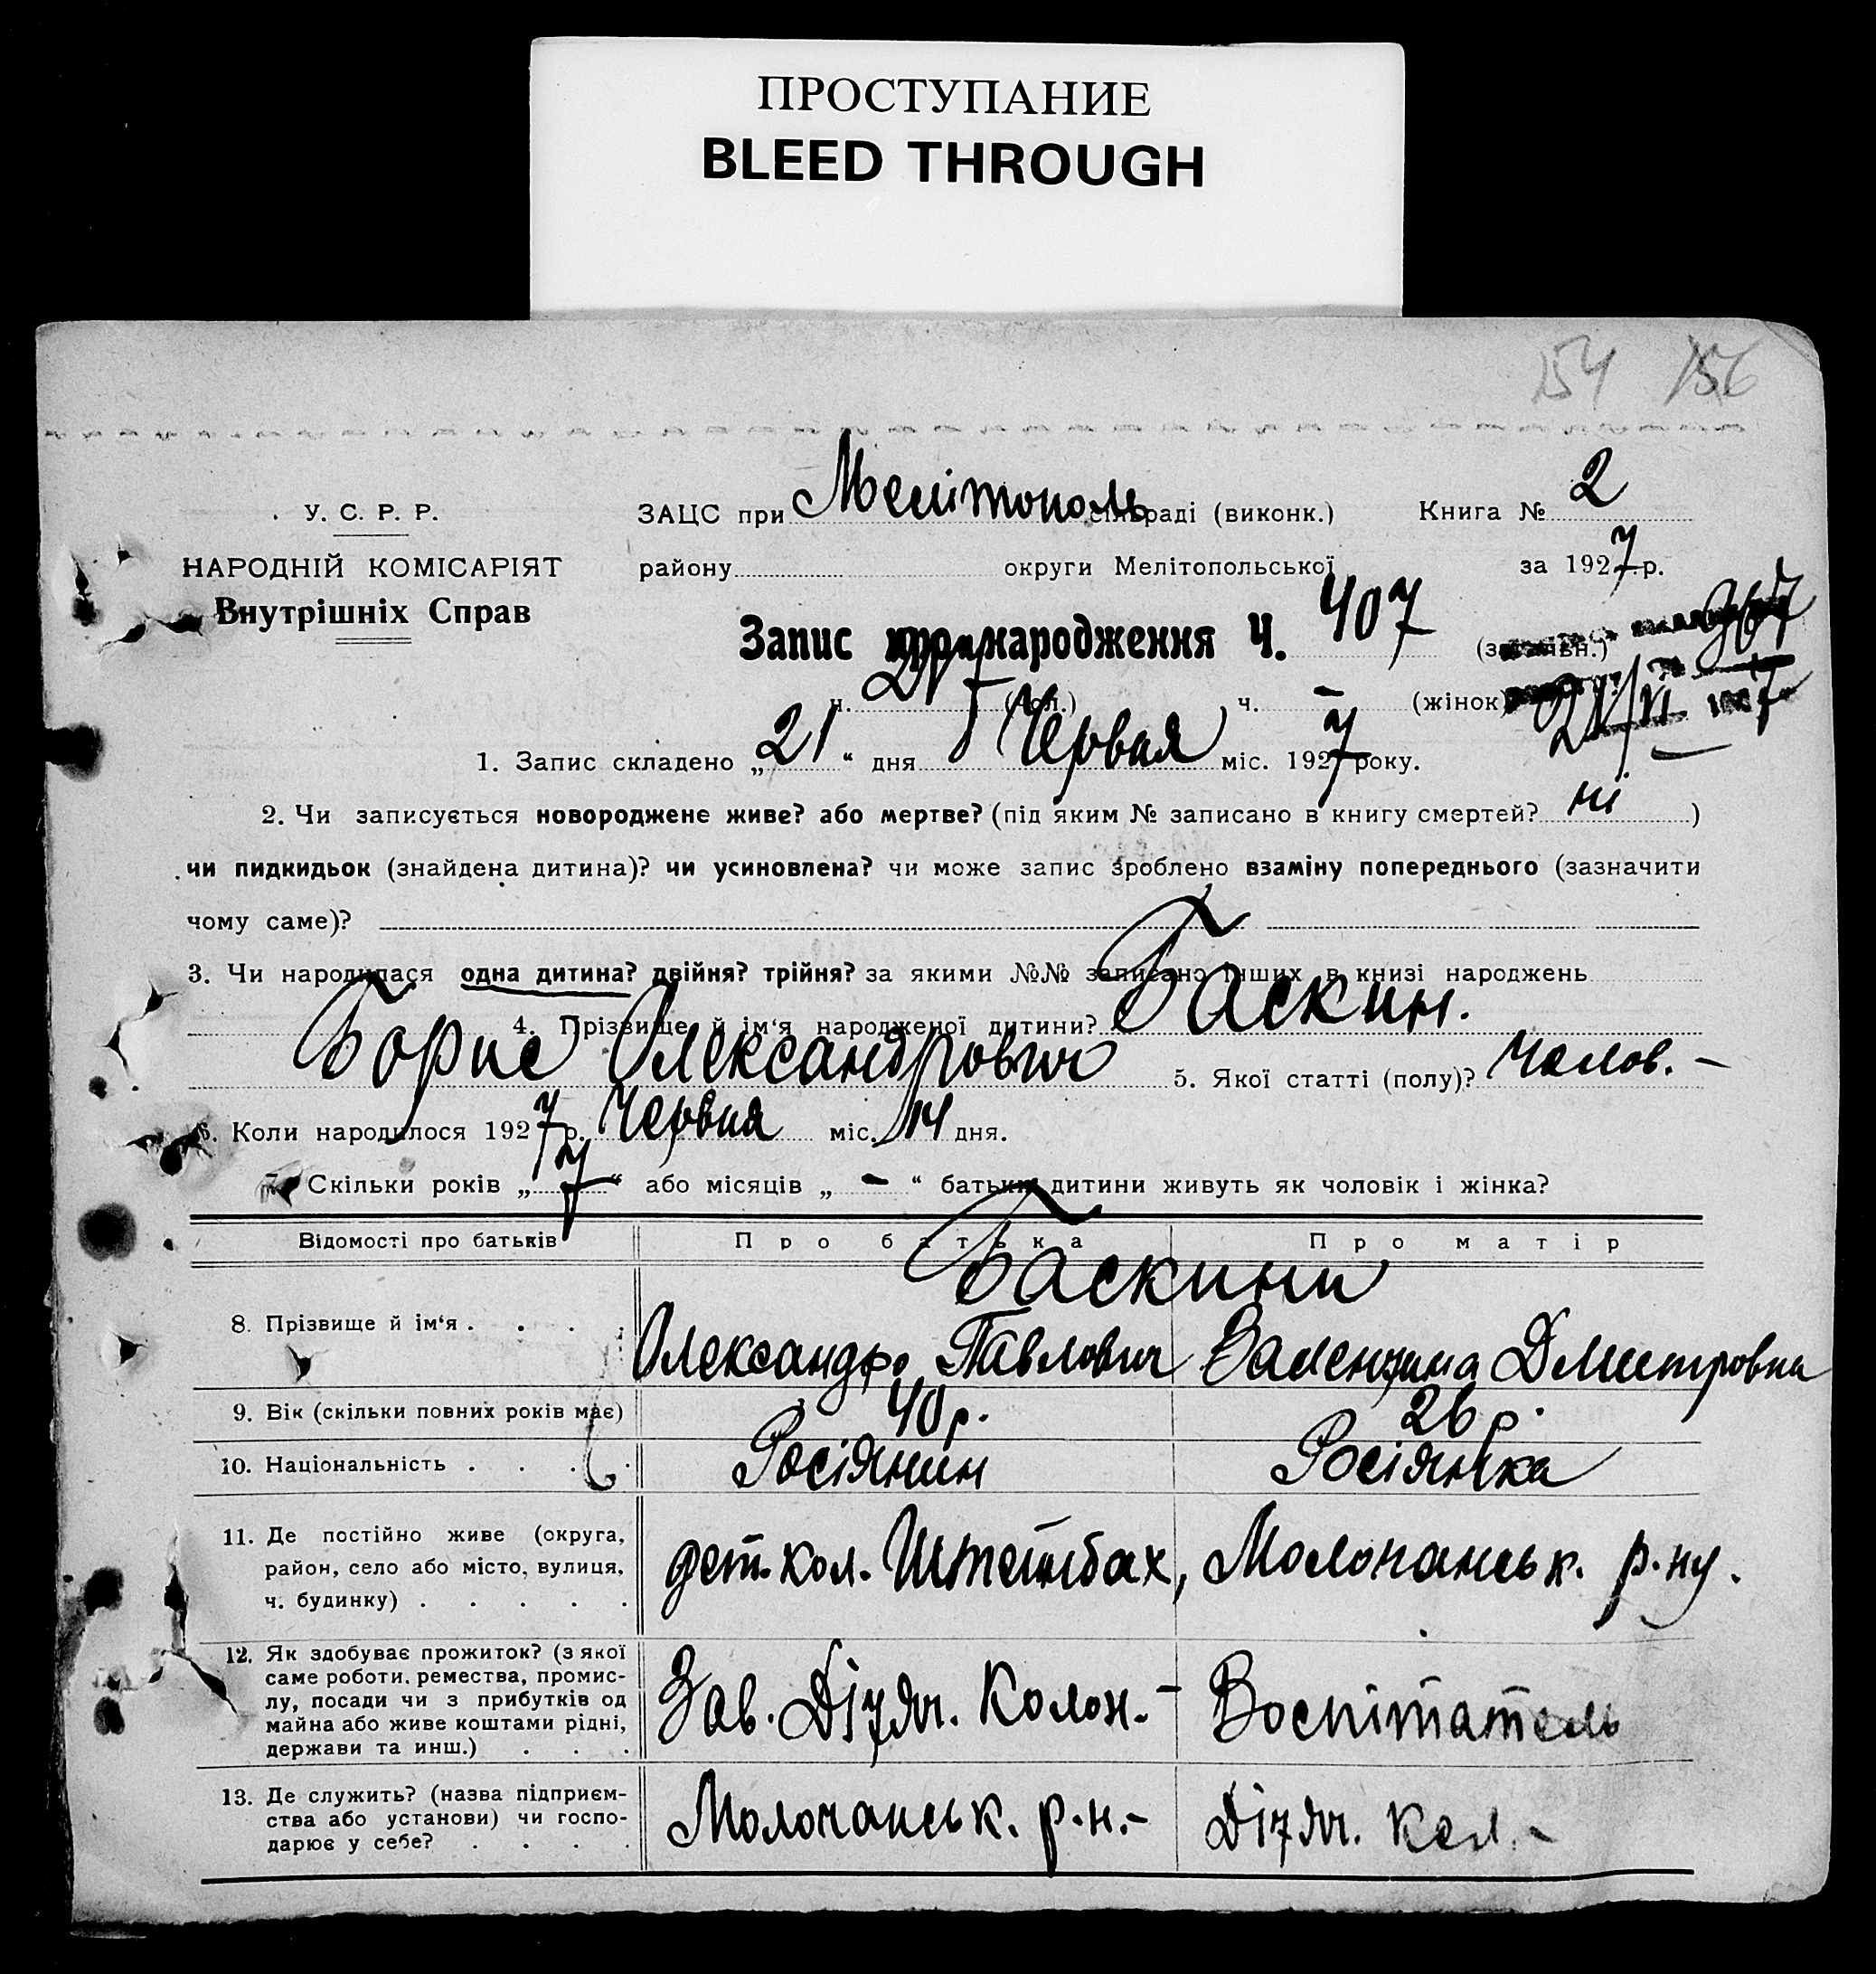 ПРОСТУПАНИЕ
BLEED THROUGH
154 156
У. С. Р. Р.
НАРОДНІЙ КОМІСАРІЯТ
Внутрішніх Справ
ЗАЦС при Мелітополь сільраді (виконк.) Книга № 2
району округи Мелітопольської за 1927 р.
Запис про народження Ч. 407 (загальн.)
ч. 217 (чол.) ч. – (жінок)
21/VI 1927
1. Запис складено „21“ дня Червня міс. 1927 року.
2. Чи записується новороджене живе? або мертве? (під яким № записано в книгу смертей? ні )
чи пидкидьок (знайдена дитина)? чи усиновлена? чи може запис зроблено взаміну попереднього (зазначити
чому саме)?
3. Чи народилася одна дитина? двійня? трійня? за якими №№ записано інших в книзі народжень
4. Прізвище й ім‘я народженої дитини? Баскин.
Борис Олександрович 5. Якої статті (полу)? Чолов. –
6. Коли народилося 1927 р. Червня міс. 14 дня.
7. Скільки років „7“ або місяців „–“ батьки дитини живуть як чоловік і жінка?
Відомості про батьків Про батька Про матір
Баскини
8. Прізвище й ім‘я . . . . Олександр Павлович Валентина Дмитровна
9. Вік (скільки повних років має) 40 р. 26 р.
10. Національність . . . . Росіянин Росіянка
11. Де постійно живе (округа,
район, село або місто, вулиця,
ч. будинку) . . . . .
дет. кол. Штейнбах, Молочанськ. р-ну.
12. Як здобуває прожиток? (з якої
саме роботи, ремества, промис-
лу, посади чи з прибутків од
майна або живе коштами рідні,
держави та инш.) . . .
Зав. Дітяч. Колон. – Воспітатель
13. Де служить? (назва підприєм-
ства або установи) чи госпо-
дарює у себе? . . . .
Молочанськ. р-н. – Дітяч. Кол. –